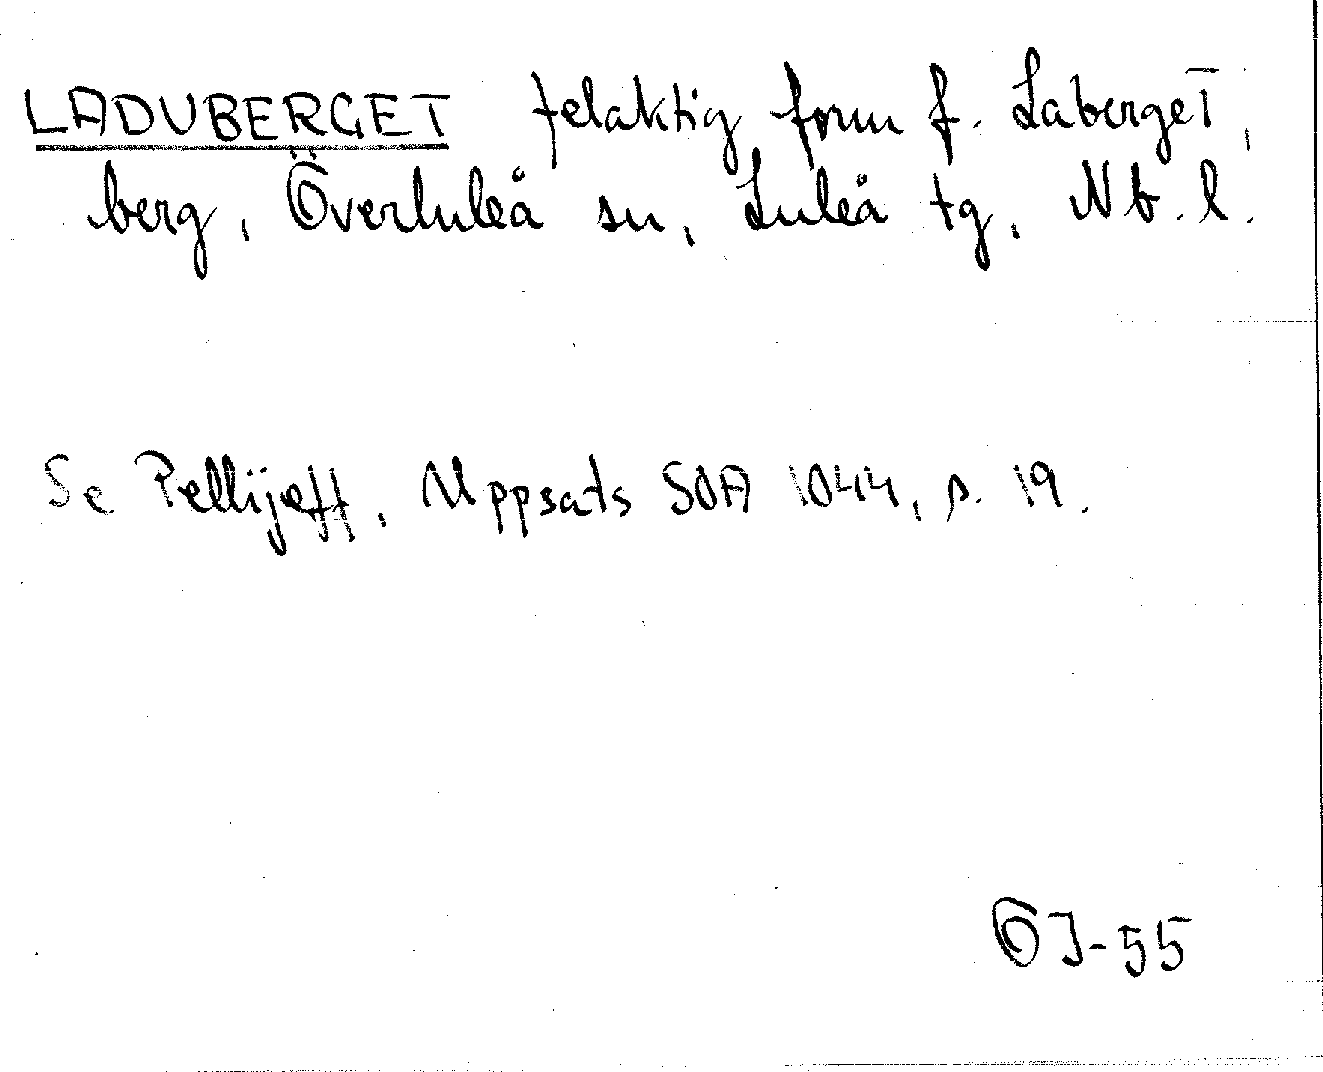 LADUBERGET felaktig form f. Laberget,
berg, Överluleå sn, Luleå tg, Nb. l.
Se Pellijeff, Uppsats SOA 1044, s. 19.
OJ-55